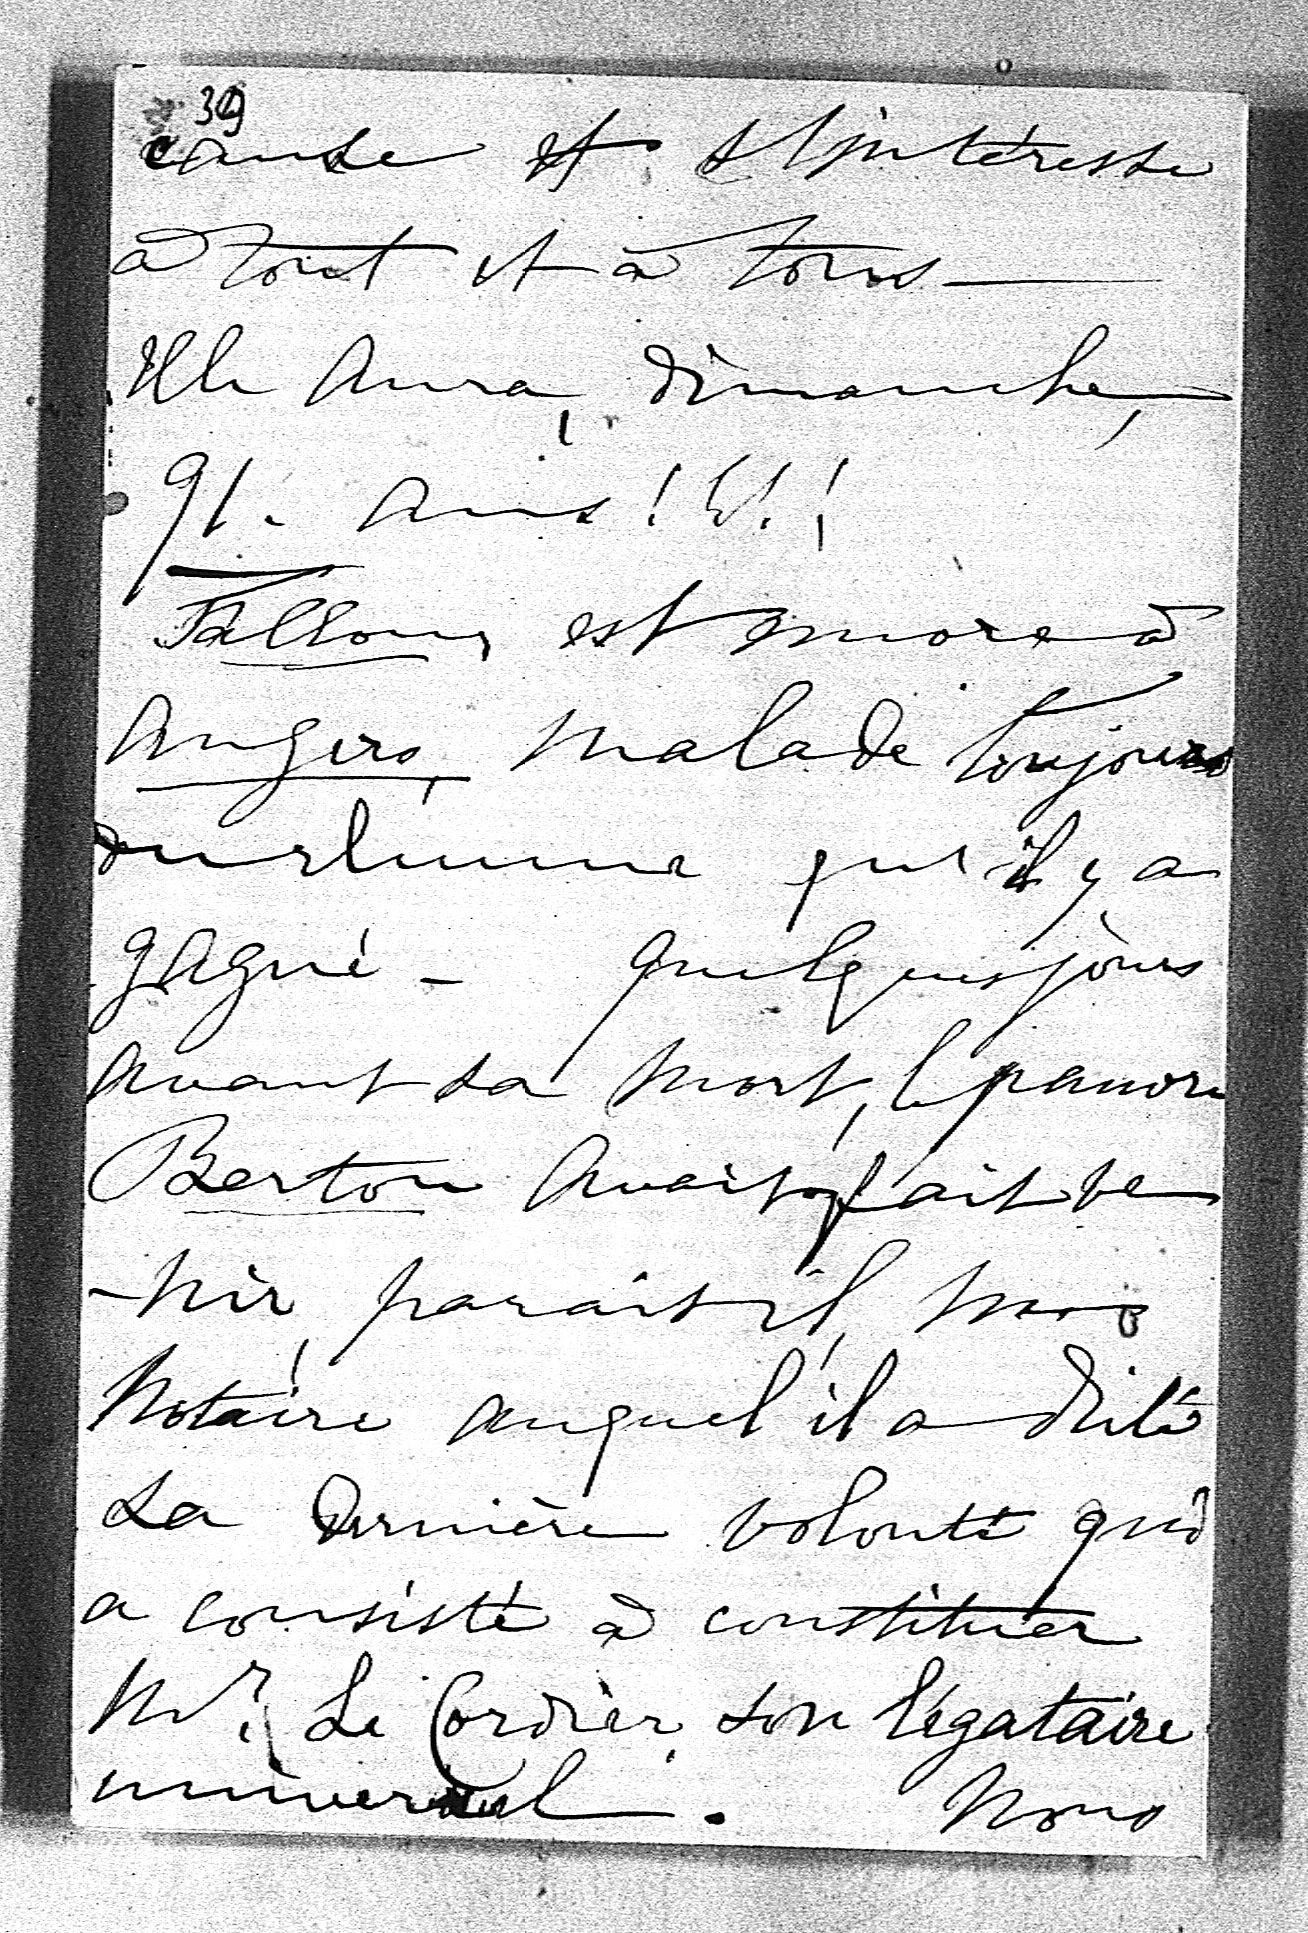 39
cause et s'intéresse
à tout et à tous —
Elle aura, dimanche,
91. ans !!!
Falloux, est encore à
Angers, malade toujours
du rhume qu'il y a
gagné - quelques jours
avant sa mort, le pauvre
Berton avait fait ve
-nir, paraît-il, mon
Notaire auquel il a dicté
sa dernière volonté qui
a consisté à constituer
Mr. Le Cordier, son légataire
universel. Nous